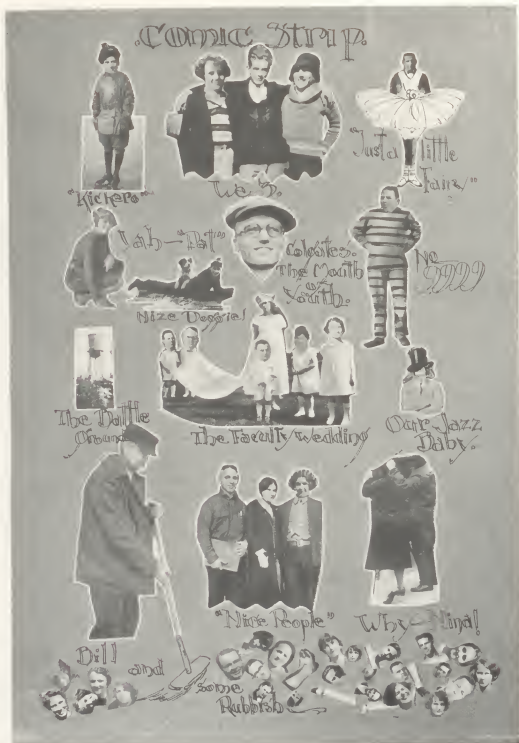 Comic Strip.
"Just a little
Fairy"
"Kickers"
We 3.
Yah—"Pat"
Colgates.
The Mouth
of
Youth.
No
9999
Nize Doggie!
The Battle
Ground
The Faculty Wedding
Our Jazz
Baby.
"Nice People"
Why—Nina!
Bill
and
some
Rubbish